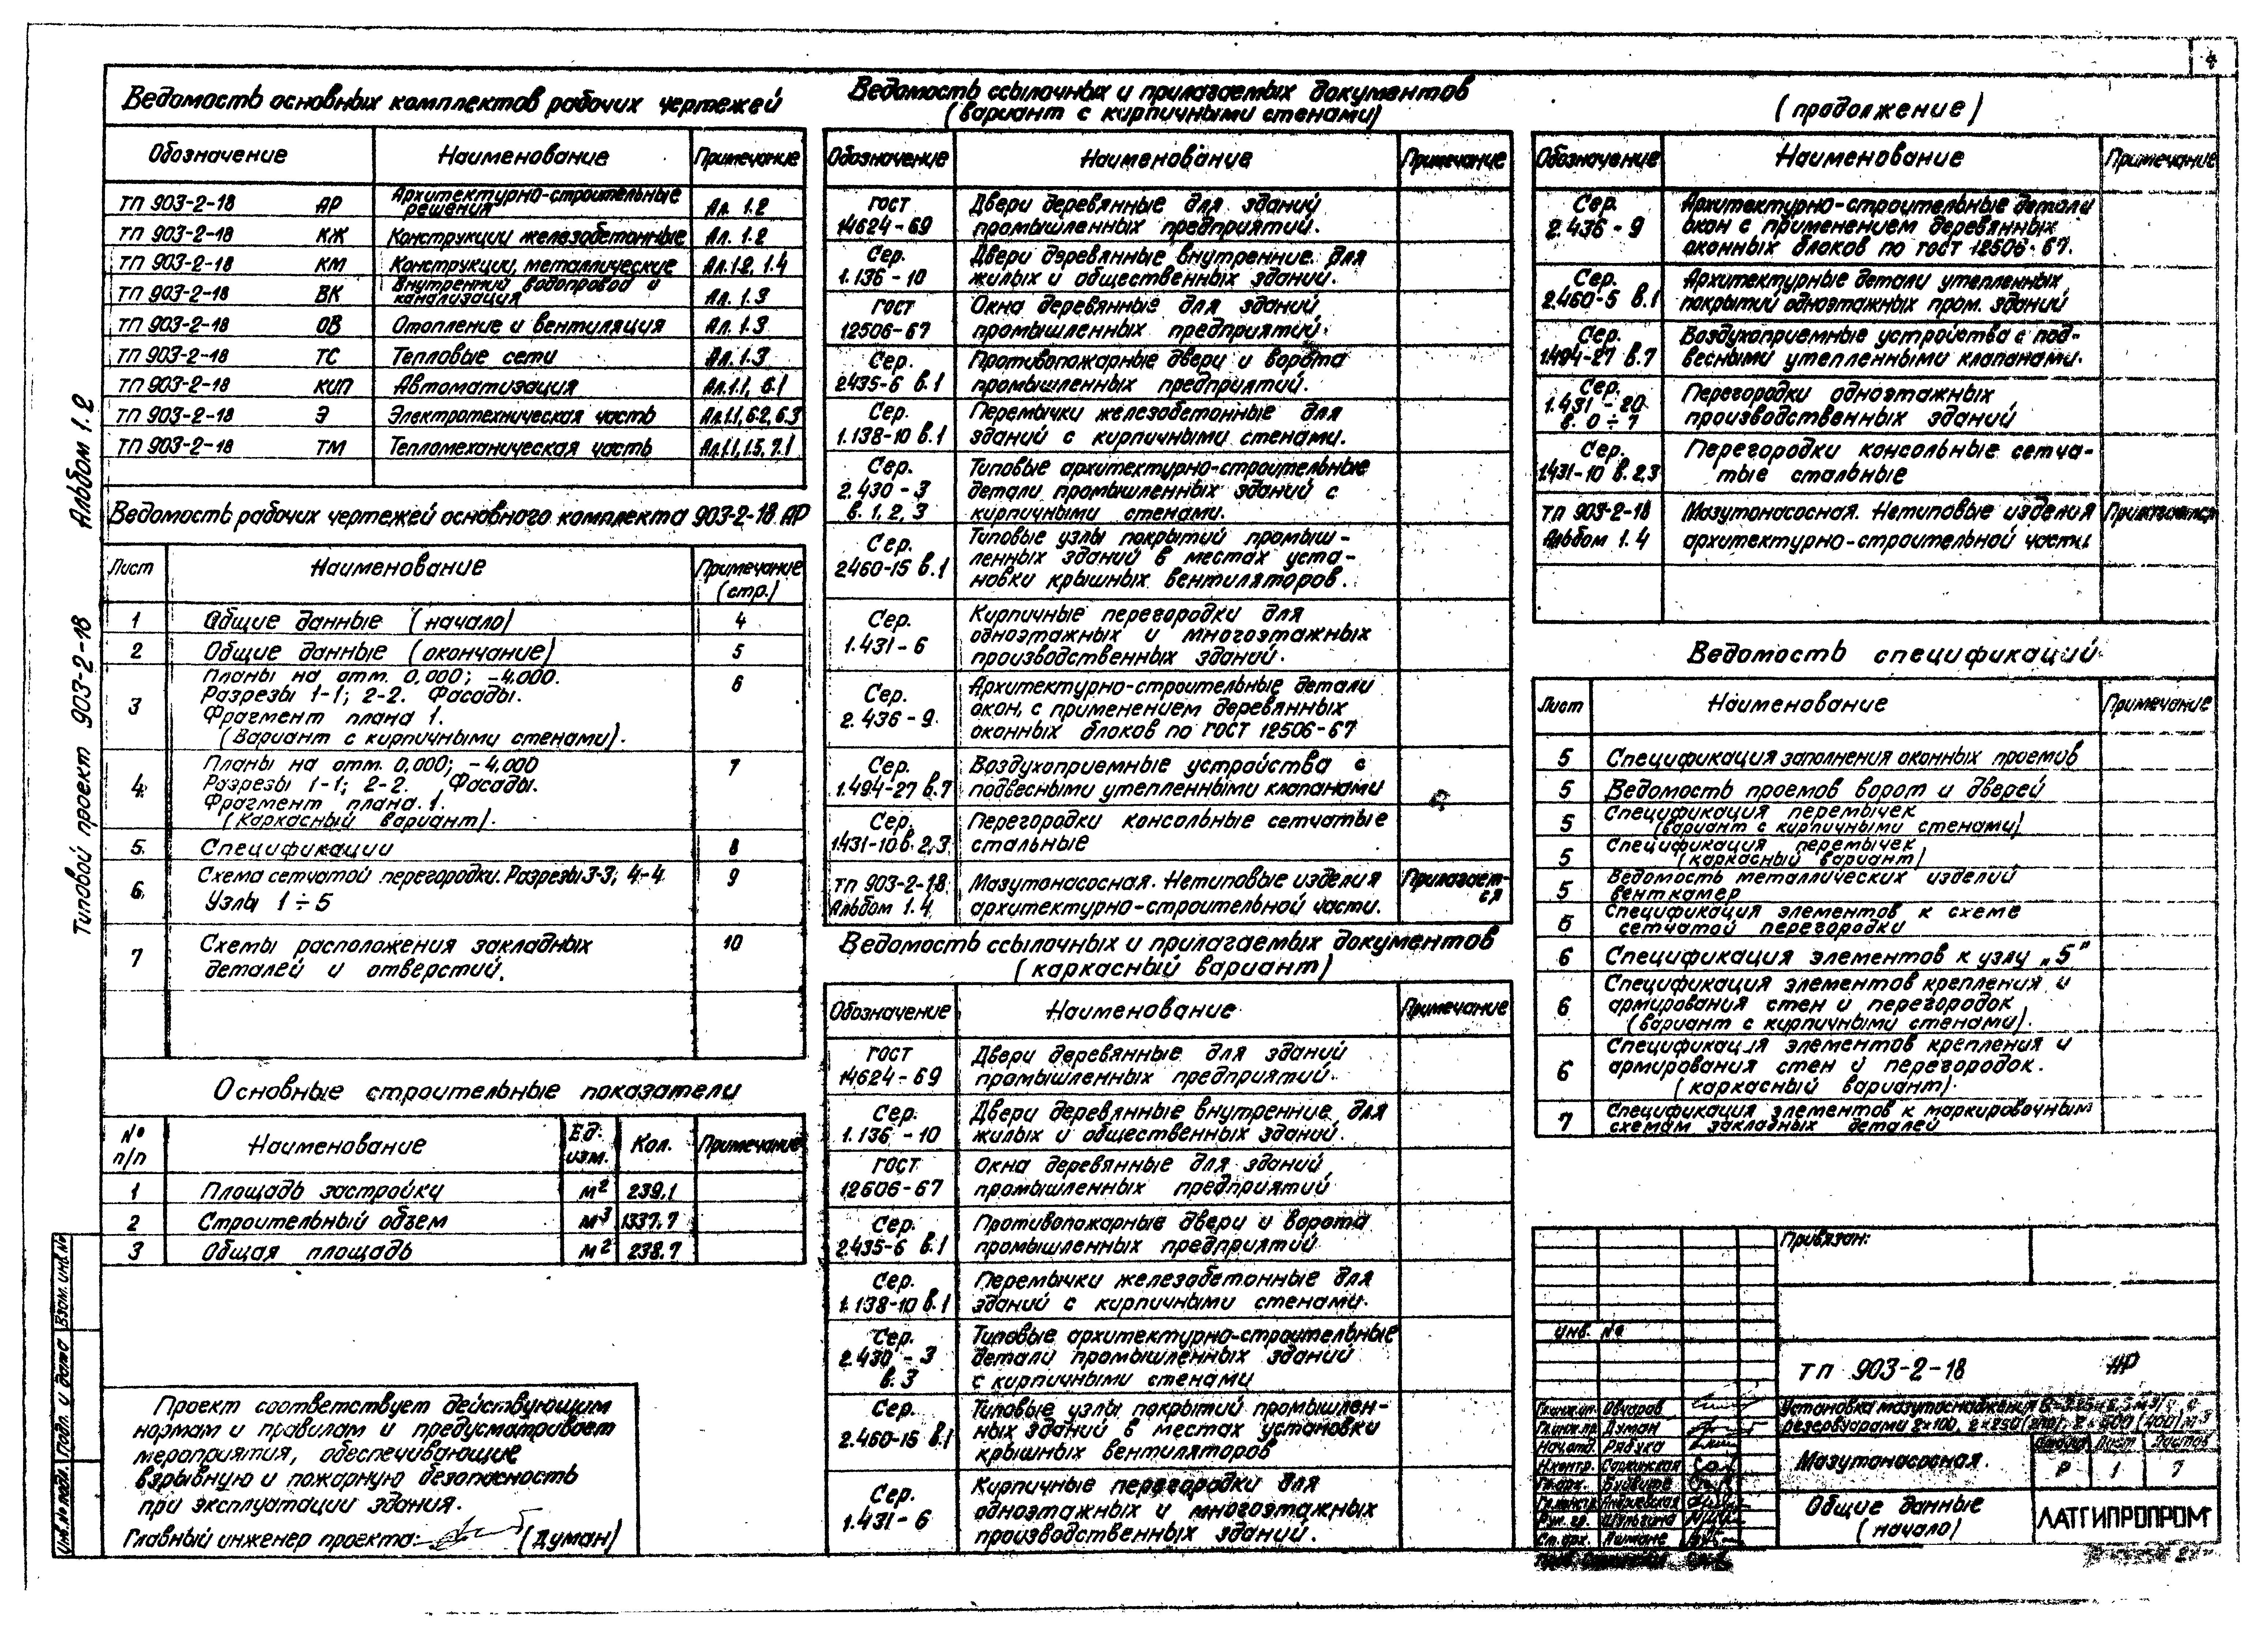 4
Ведомость основных комплектов рабочих чертежей
Обозначение Наименование Примечание
ТП 903-2-18 АР Архитектурно-строительные решения Ал. 1.2
ТП 903-2-18 КЖ Конструкции железобетонные Ал. 1.2
ТП 903-2-18 КМ Конструкции металлические Ал. 1.2, 1.4
ТП 903-2-18 ВК Внутренний водопровод и канализация Ал. 1.3
ТП 903-2-18 ОВ Отопление и вентиляция Ал. 1.3
ТП 903-2-18 ТС Тепловые сети Ал. 1.3
ТП 903-2-18 КИП Автоматизация Ал. 1.1, 6.1
ТП 903-2-18 Э Электротехническая часть Ал. 1.1, 6.2, 6.3
ТП 903-2-18 ТМ Тепломеханическая часть Ал. 1.1, 1.5, 7.1
Ведомость рабочих чертежей основного комплекта 903-2-18 АР
Лист Наименование Примечание (стр.)
1 Общие данные (начало) 4
2 Общие данные (окончание) 5
3 Планы на отм. 0,000; -4,000. 6
Разрезы 1-1; 2-2. Фасады.
Фрагмент плана 1.
(Вариант с кирпичными стенами).
4 Планы на отм. 0,000; -4,000 7
Разрезы 1-1; 2-2. Фасады.
Фрагмент плана 1.
(Каркасный вариант).
5 Спецификации 8
6 Схема сетчатой перегородки. Разрезы 3-3; 4-4 9
Узлы 1÷5
7 Схемы расположения закладных 10
деталей и отверстий.
Основные строительные показатели
№ п/п Наименование Ед. изм. Кол. Примечание
1 Площадь застройки м² 239,1
2 Строительный объем м³ 1337,7
3 Общая площадь м² 238.7
Проект соответствует действующим
нормам и правилам и предусматривает
мероприятия, обеспечивающие
взрывную и пожарную безопасность
при эксплуатации здания.
Главный инженер проекта (Думан)
Альбом 1.2
Типовой проект 903-2-18
Инв. № подл. Подп. и дата Взам. инв. №
Ведомость ссылочных и прилагаемых документов
(вариант с кирпичными стенами)
Обозначение Наименование Примечание
ГОСТ Двери деревянные для зданий
14624-69 промышленных предприятий.
Сер. Двери деревянные внутренние для
1.136-10 жилых и общественных зданий.
ГОСТ Окна деревянные для зданий
12506-67 промышленных предприятий.
Сер. Противопожарные двери и ворота
2.435-6 в.1 промышленных предприятий.
Сер. Перемычки железобетонные для
1.138-10 в.1 зданий с кирпичными стенами.
Сер. Типовые архитектурно-строительные
2.430-3 детали промышленных зданий с
в. 1, 2, 3 кирпичными стенами.
Сер. Типовые узлы покрытий промыш-
ленных зданий в местах уста-
2.460-15 в.1 новки крышных вентиляторов.
Сер. Кирпичные перегородки для
1.431-6 одноэтажных и многоэтажных
производственных зданий.
Сер. Архитектурно-строительные детали
2.436-9 окон, с применением деревянных
оконных блоков по ГОСТ 12506-67
Сер. Воздухоприемные устройства с
1.494-27 в.7 подвесными утепленными клапанами
Сер. Перегородки консольные сетчатые
1.431-10 в. 2,3 стальные
ТП 903-2-18 Мазутонасосная. Нетиповые изделия Прилагает-
Альбом 1.4 архитектурно-строительной части. ся
Ведомость ссылочных и прилагаемых документов
(каркасный вариант)
Обозначение Наименование Примечание
ГОСТ Двери деревянные для зданий
14624-69 промышленных предприятий.
Сер. Двери деревянные внутренние для
1.136-10 жилых и общественных зданий.
ГОСТ Окна деревянные для зданий
12606-67 промышленных предприятий
Сер. Противопожарные двери и ворота
2.435-6 в.1 промышленных предприятий
Сер. Перемычки железобетонные для
1.138-10 в.1 зданий с кирпичными стенами.
Сер. Типовые архитектурно-строительные
2.430-3 детали промышленных зданий
в.3 с кирпичными стенами
Сер. Типовые узлы покрытий промышлен-
ных зданий в местах установки
2.460-15 в.1 крышных вентиляторов
Сер. Кирпичные перегородки для
1.431-6 одноэтажных и многоэтажных
производственных зданий.
(продолжение)
Обозначение Наименование Примечание
Сер. Архитектурно-строительные детали
2.436-9 окон с применением деревянных
оконных блоков по ГОСТ 12506-67.
Сер. Архитектурные детали утепленных
2.460-5 в.1 покрытий одноэтажных пром. зданий
Сер. Воздухоприемные устройства с под-
1.494-27 в.7 весными утепленными клапанами.
Сер. Перегородки одноэтажных
1.431-20 производственных зданий
в. 0÷7
Сер. Перегородки консольные сетча-
1.431-10 в. 2,3 тые стальные
ТП 903-2-18 Мазутонасосная. Нетиповые изделия Прилагается
Альбом 1.4 архитектурно-строительной части
Ведомость спецификаций
Лист Наименование Примечание
5 Спецификация заполнения оконных проемов
5 Ведомость проемов ворот и дверей
5 Спецификация перемычек
(вариант с кирпичными стенами)
5 Спецификация перемычек
(каркасный вариант)
5 Ведомость металлических изделий
венткамер
6 Спецификация элементов к схеме
сетчатой перегородки
6 Спецификация элементов к узлу „5"
Спецификация элементов крепления и
6 армирования стен и перегородок
(вариант с кирпичными стенами).
Спецификация элементов крепления и
6 армирования стен и перегородок.
(каркасный вариант).
7 Спецификация элементов к маркировочным
схемам закладных деталей
Привязан:
Инв. №
ТП 903-2-18 АР
Установка мазутоснабжения
резервуарами
Мазутонасосная
Стадия Лист Листов
Р 1 7
Общие данные
(начало)
ЛАТГИПРОПРОМ
Гл.инж.ин. Овчаров
Гл.инж.пр. Думан
Нач.отд. Рябука
Н.контр.
Гл.арх.
Гл.констр.
Рук. гр. Шульгина
Ст. арх.